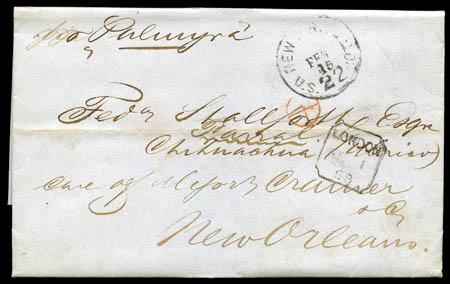 per Palmyra
NEW YORK
FEB
16
U.S. 22
Fedr Stallforth Esqr
Parral
Chihuahua (Mexico)
LONDON
1
69
care of Messrs Cramer
& Co
New Orleans.